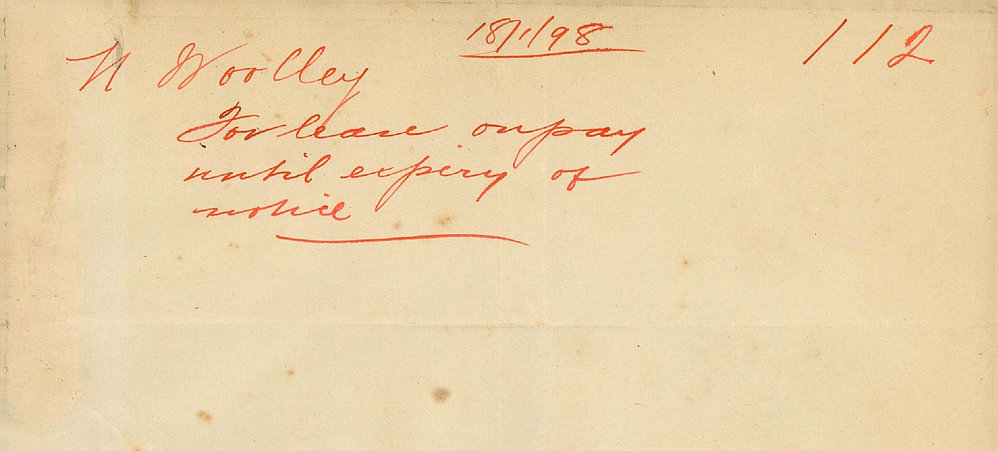 18/1/98
112
N Woolley
For leave on pay
until expiry of
notice